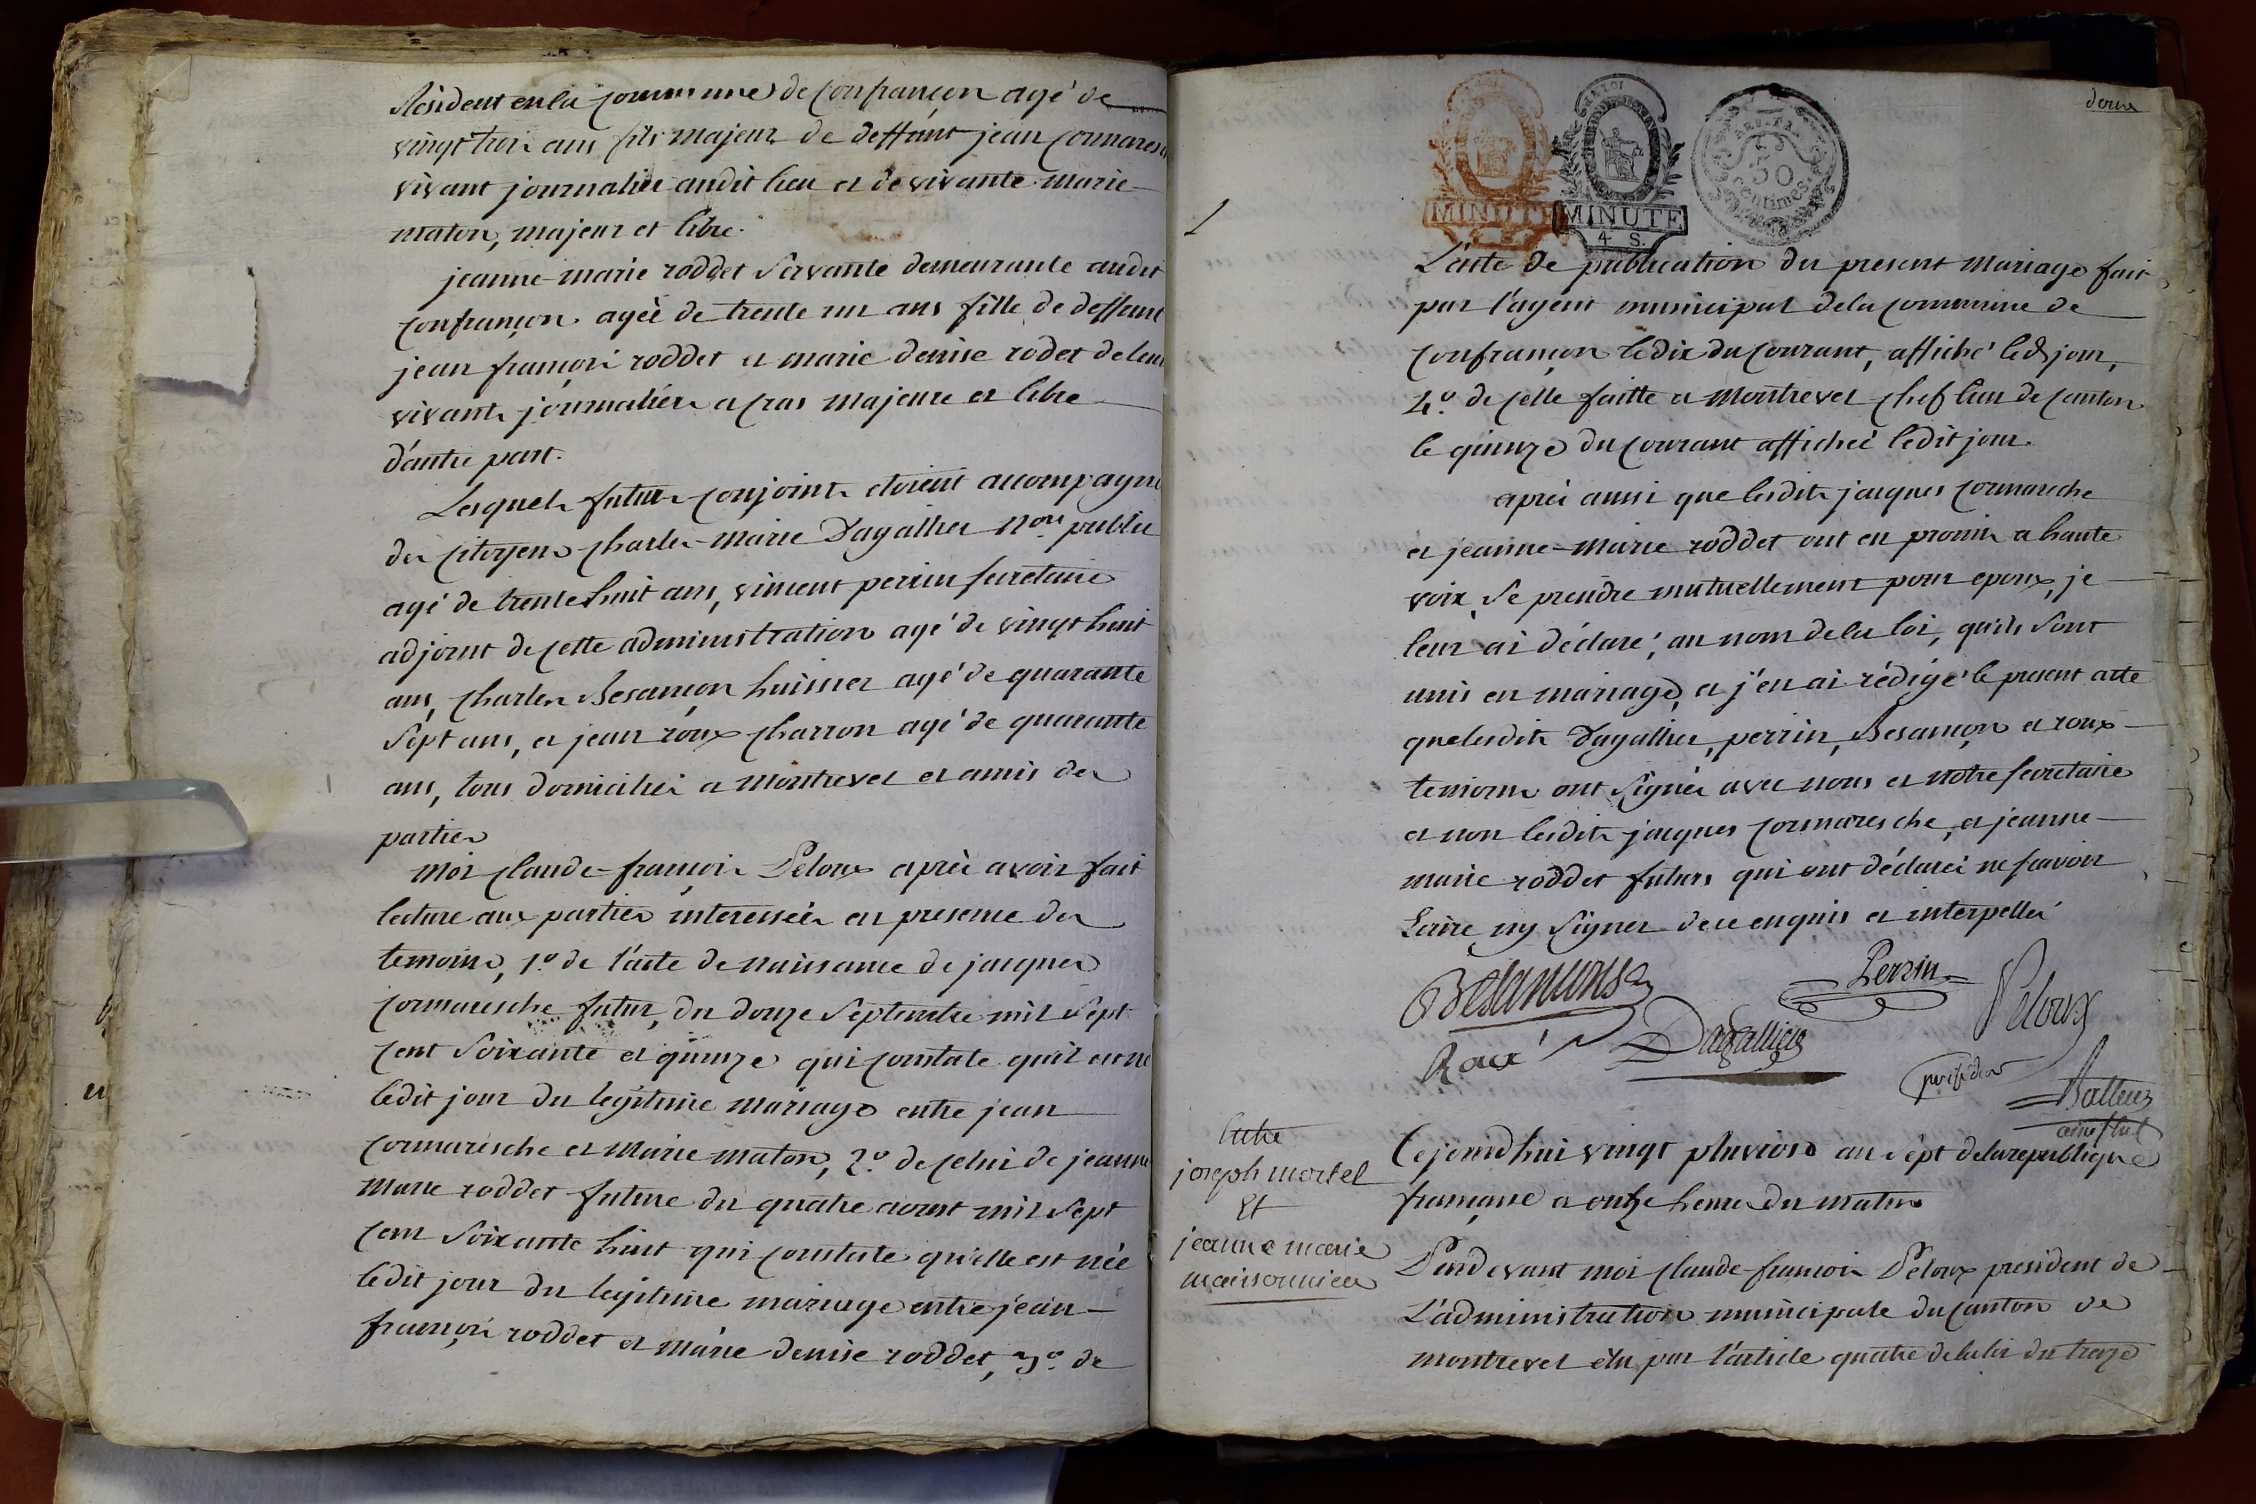 Résident en la commune de confrançon agé de
vingt trois ans fils majeur de deffunt jean cormaresche
vivant journalier audit lieu et de vivante marie
maton, majeur et libre.
jeanne marie roddet servante demeurante audit
confrançon agée de trente un ans fille de deffunt
jean françois roddet et marie denise rodet de leur
vivant journaliers a cras majeure et libre
d'autre part.
Lesquels futurs conjoints etoient accompagné
des citoyens charles-marie Dagallier Nore. public
agé de trente huit ans, vincent perrin secretaire
adjoint de cette administration agé de vingt huit
ans, charles Besançon huissier agé de quarante
sept ans, et jean roux charron agé de quarante
ans, tous domiciliés a montrevel et amis des
parties
moi claude-françois Peloux après avoir fait
lecture aux parties interessées en presence des
temoins, 1o. de l'acte de naissance de jacques
cormaresche futur, du douze septembre mil sept
cent soixante et quinze qui constate qu'il est né
ledit jour du legitime mariage entre jean
cormaresche et marie maton, 2o. de celui de jeanne
marie roddet future du quatre aoust mil sept
cent soixante huit qui constate qu'elle est née
ledit jour du legitime mariage entre jean-
françois roddet et marie denise roddet, 3o. de
MINUTE
4 S.
MINUTE
4 S.
50
centimes.
L'acte de publication du present mariage fait
par l'agent municipal de la commune de
confrançon le dix du courant, affiché led jour,
4o. de celle faitte a montrevel chef lieu de canton
le quinze du courant affichée ledit jour.
après aussi que lesdits jacques cormaresche
et jeanne-marie roddet ont eu promis a haute
voix, se prendre mutuellement pour epoux, je
leur ai déclaré, au nom de la loi, qu'ils sont
unis en mariage, et j'en ai rédigé le present acte
que lesdits Dagallier, perrin, Besançon et roux
temoins ont signés avec nous et notre secretaire
et non lesdits jacques cormaresche, et jeanne-
marie roddet futurs qui ont déclarés ne scavoir
Ecrire ny signer de ce enquis et interpellés
Besançons
Perrin
Peloux
Roux
Dagallier
president
L'acte
joseph mortel
Et
jeanne marie
maisonnier
Cejourd'hui vingt pluviose an sept de la republique
françoise a onze heures du matin
Pardevant moi claude-françois Peloux president de
L'administration municipale du canton de
montrevel élu par l'article quatre de la loi du treize